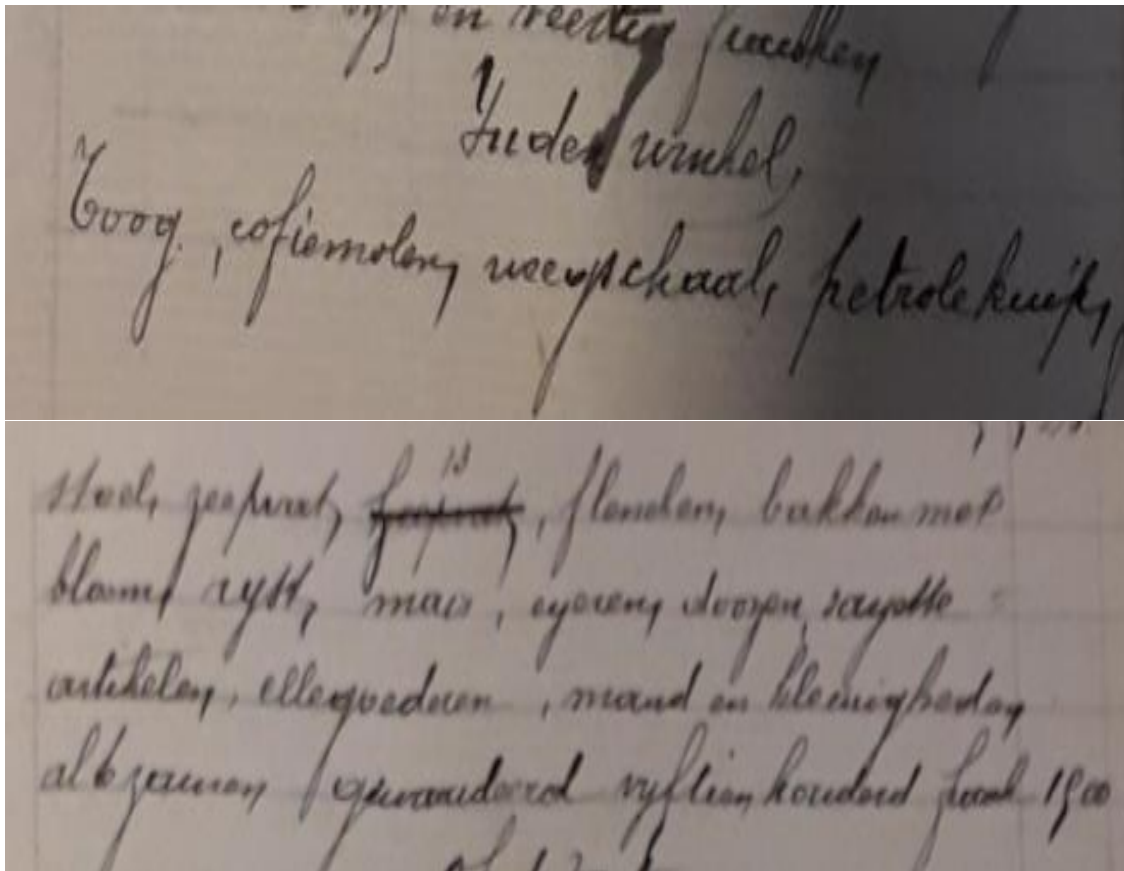 en veertig franken
In den winkel,
Toog, cofiemolen, weegschaal, petrolekuip,
stoel, zeepvat, flenellen, bakken met
bloem, ryst, mais, eyeren, doozen, sayette
artikelen, ellegoederen, mand en kleinigheden
alle zamen gewaardeerd vyftien honderd frank 1500